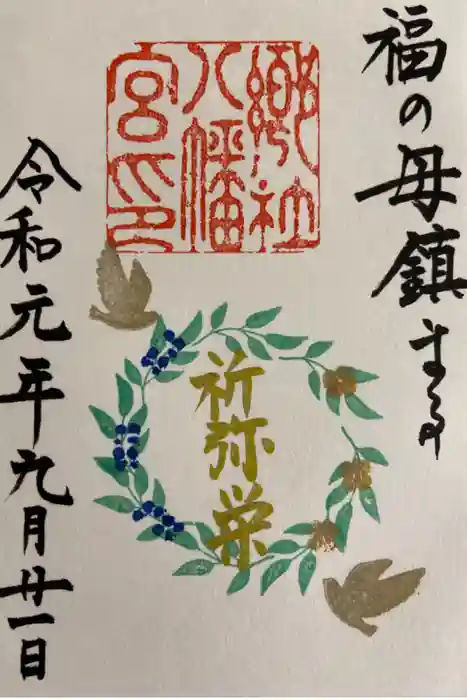 福の母鎮まる
郷社
八幡
宮印
祈弥栄
令和元年九月廿一日